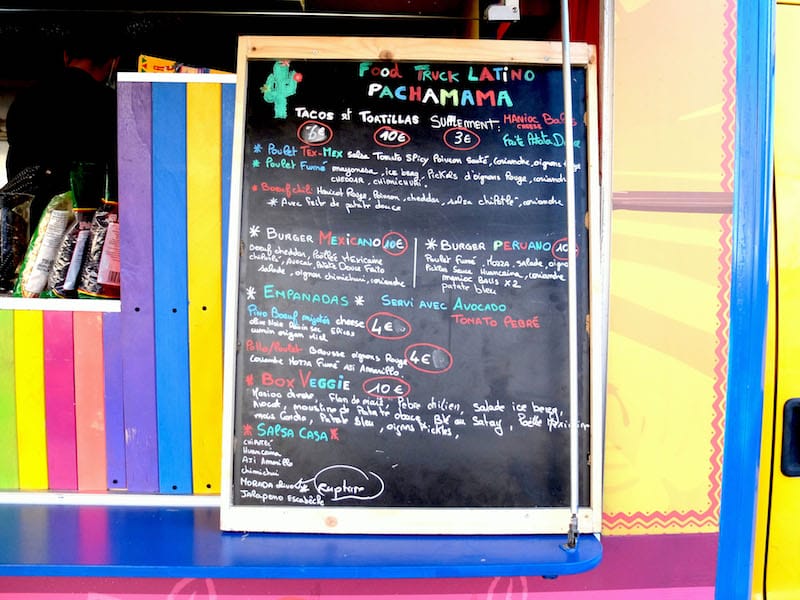 Food Truck LATiNO
PACHAMAMA
TACOS et TORTILLAS SUPLEMENT: MANIOC Balls
CHEESE
10€ 3€ Frite Patata Douce
* Poulet Tex-Mex salsa Tomato Spicy Poivron Sauté, coriandre, oignons rouge
* Poulet Fumé mayonesa, ice berg, Pickels d'oignons Rouge, coriandre
CHEDDAR, CHIMICHURI.
* Boeuf chili Haricot Rouge, Poivron, cheddar, salsa chipotlé, coriandre
* Avec frite de patate douce
* BURGER MEXICANO 10€
Boeuf cheddar, Mexicaine
chipotlé, Avocat, Patate Douce Frite
salade, oignon chimichuri, coriandre
* BURGER PERUANO 10
Poulet Fumé, Mozza, salade, oignon
Pickles Sauce Huancaina, coriandre
manioc Balls x2
patate bleu
* EMPANADAS * SERVI AVEC AVOCADO
TOMATO PEBRÉ
Pino Boeuf mijotés cheese 4€
olive Noir Raisin sec Epices
cumin origan miel
* Pollo/Poulet oignons Rouge 4€
coriandre Mozza Fumé Aji Amarillo.
* BOX VEGGIE 10€
Manioc cheese, Flan de maïs, Pebre chilien, Salade ice berg,
Avocat, mousseline de Patate douce, Blé au Satay, Poêlée Mexicaine
Patate Bleu, oignons Pickles,
* SALSA CASA *
CHIPOTLÉ
Huancaina
AJI Amarillo
chimichuri
MORADA olive * Rupture
JALAPENO Escabèche